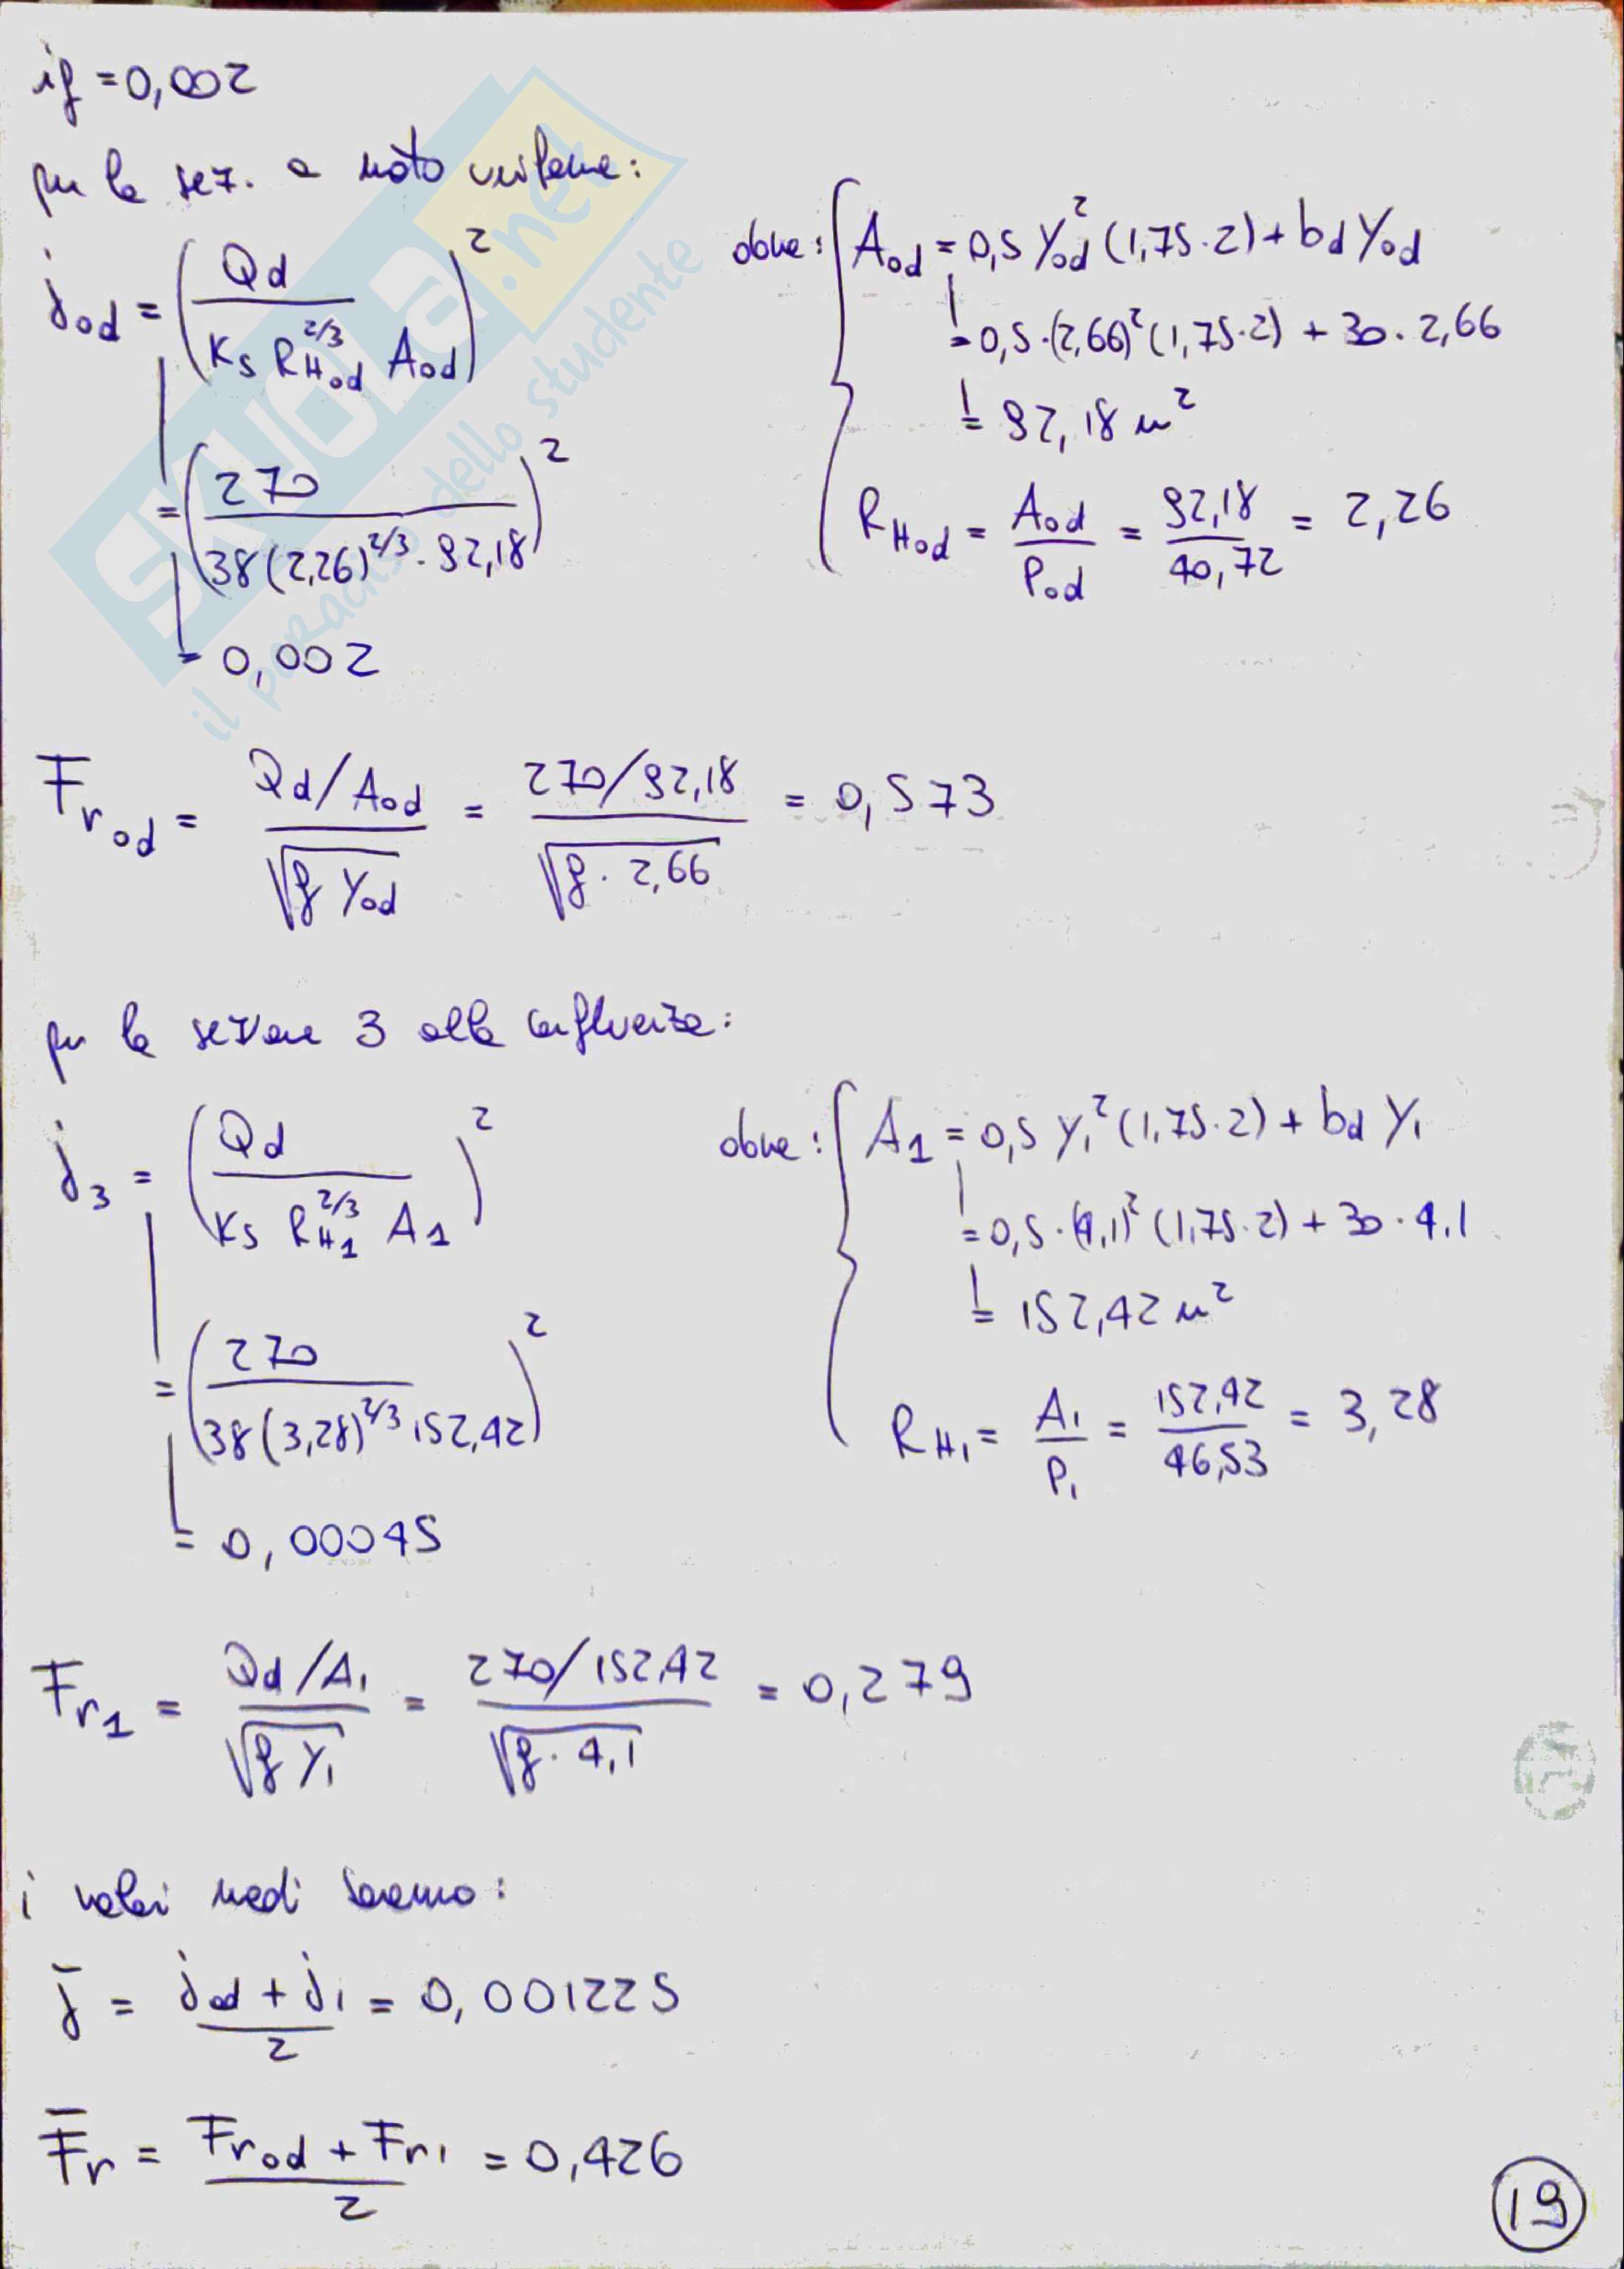 if = 0,002
per la sez. a moto uniforme:
jod = (Qd / (Ks RHod^2/3 Aod))^2
= (270 / (38 (2,26)^2/3 · 92,18))^2
= 0,002
dove: Aod = 0,5 Yod^2 (1,75·2) + bd Yod
= 0,5·(2,66)^2 (1,75·2) + 30·2,66
= 92,18 m^2
RHod = Aod / Pod = 92,18 / 40,72 = 2,26
Frod = (Qd/Aod) / √(g Yod) = (270/92,18) / √(g · 2,66) = 0,573
per la sezione 3 alla confluenza:
j3 = (Qd / (Ks RH1^2/3 A1))^2
= (270 / (38 (3,28)^2/3 152,42))^2
= 0,00045
dove: A1 = 0,5 Y1^2 (1,75·2) + bd Y1
= 0,5·(4,1)^2 (1,75·2) + 30·4,1
= 152,42 m^2
RH1 = A1 / P1 = 152,42 / 46,53 = 3,28
Fr1 = (Qd/A1) / √(g Y1) = (270/152,42) / √(g · 4,1) = 0,279
i valori medi saranno:
j̄ = (jod + j1) / 2 = 0,001225
F̄r = (Frod + Fr1) / 2 = 0,426
19
SKUOLA.net
il paradiso dello studente